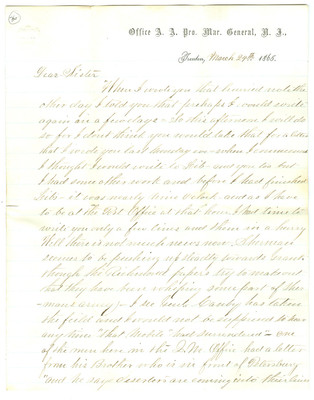 Office A. A. Pro. Mar. General, N. J.,
Trenton, March 29th 1865.
Dear Sister
When I wrote you that hurried note the
other day I told you that perhaps I would write
again in a few days - So this afternoon I will do
so for I dont think you would call that for a letter
that I wrote you last thursday - when I commenced
I thought I would write to Lib and you too but
I had some other work and before I had finished
Lib's - it was nearly nine o'clock and as I have
to be at the Post Office at that hour I had time to
write you only a few lines and them in a hurry
Well there is not much news now - Sherman
seems to be pushing up steadily towards Grant
though the Richmond papers try to make out
that they have been whipping some part of Sher-
man's army - I see Genl Canby has taken
the field and I would not be surprised to hear
any time "that Mobile" had surrendered - one
of the men here in the Q.M. Office had a letter
from his Brother who is in front of Petersburg
and he says deserters are coming into their lines